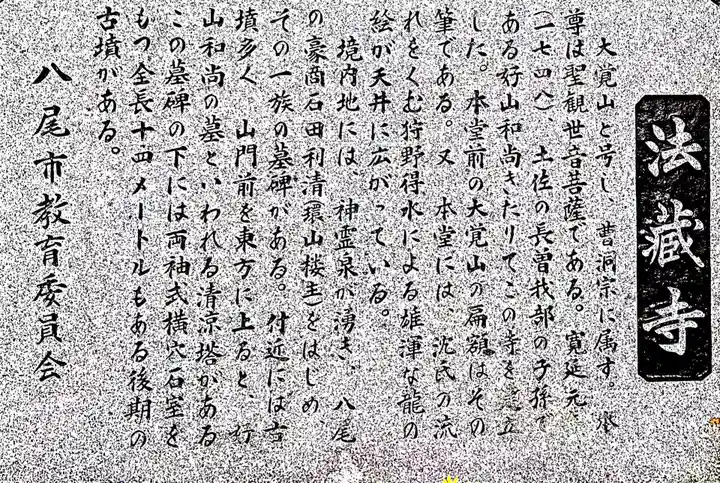 法藏寺
大覚山と号し、曹洞宗に属す。
尊は聖観世音菩薩である。寛延元
(一七四八)、土佐の長曽我部の子孫で
ある好山和尚きたりてこの寺を建立
した。本堂前の大覚山の扁額はその
筆である。又、本堂には、沈氏の流
れをくむ狩野得水による雄渾な龍の
絵が天井に広がっている。
境内地には、神霊泉が湧き、八尾
の豪商石田利清(環山楼主)をはじめ、
その一族の墓碑がある。付近には古
墳多く、山門前を東方に上ると、好
山和尚の墓といわれる清涼塔がある
この墓碑の下には両袖式横穴石室を
もつ全長十四メートルもある後期の
古墳がある。
八尾市教育委員会